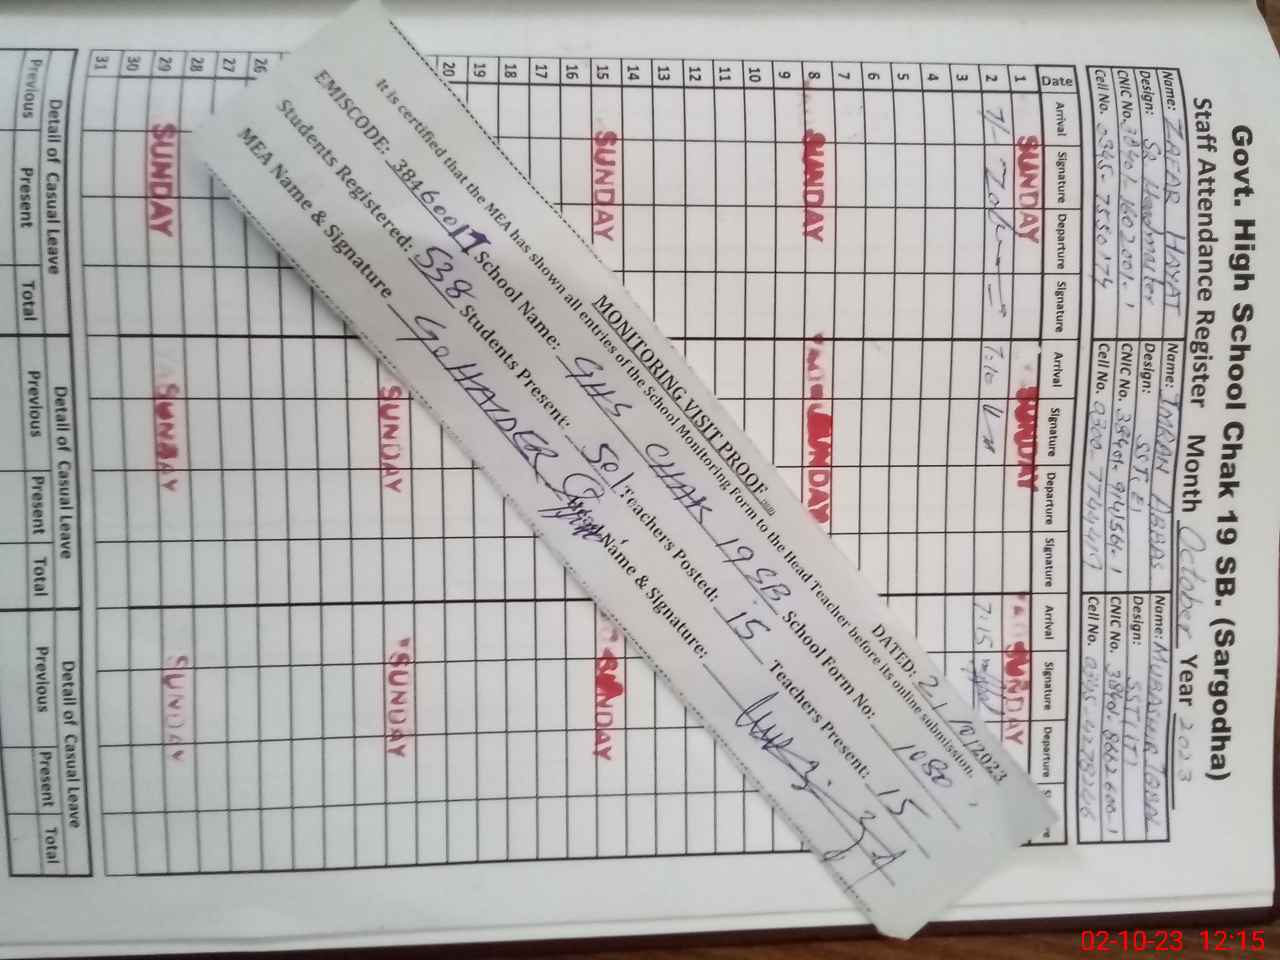 Govt. High School Chak 19 SB. (Sargodha)
Staff Attendance Register Month October Year 2023
Name: ZAFAR HAYAT
Design: Sr Headmaster
CNIC No.
Cell No. 0345-7550174
Name: IMRAN ABBAS
Design: SST
CNIC No.
Cell No.
Name: MUBASHIR IQBAL
Design: SST (IT)
CNIC No.
Cell No.
Date Arrival Signature Departure Signature Arrival Signature Departure Signature Arrival Signature Departure
1 SUNDAY SUNDAY SUNDAY
2 7:10 7:15
3
4
5
6
7
8 SUNDAY SUNDAY
9
10
11
12
13
14
15 SUNDAY SUNDAY
16
17
18
19
20
SUNDAY SUNDAY
26
27
28
29 SUNDAY SUNDAY SUNDAY
30
31
Detail of Casual Leave Detail of Casual Leave Detail of Casual Leave
Previous Present Total Previous Present Total Previous Present Total
MONITORING VISIT PROOF
DATED: 2/10/2023
It is certified that the MEA has shown all entries of the School Monitoring Form to the Head Teacher before its online submission.
EMISCODE: 38460017 School Name: GHS CHAK 19 SB School Form No: 1080
Students Registered: 538 Students Present: 501 Teachers Posted: 15 Teachers Present: 15
MEA Name & Signature HAIDER Name & Signature:
02-10-23 12:15